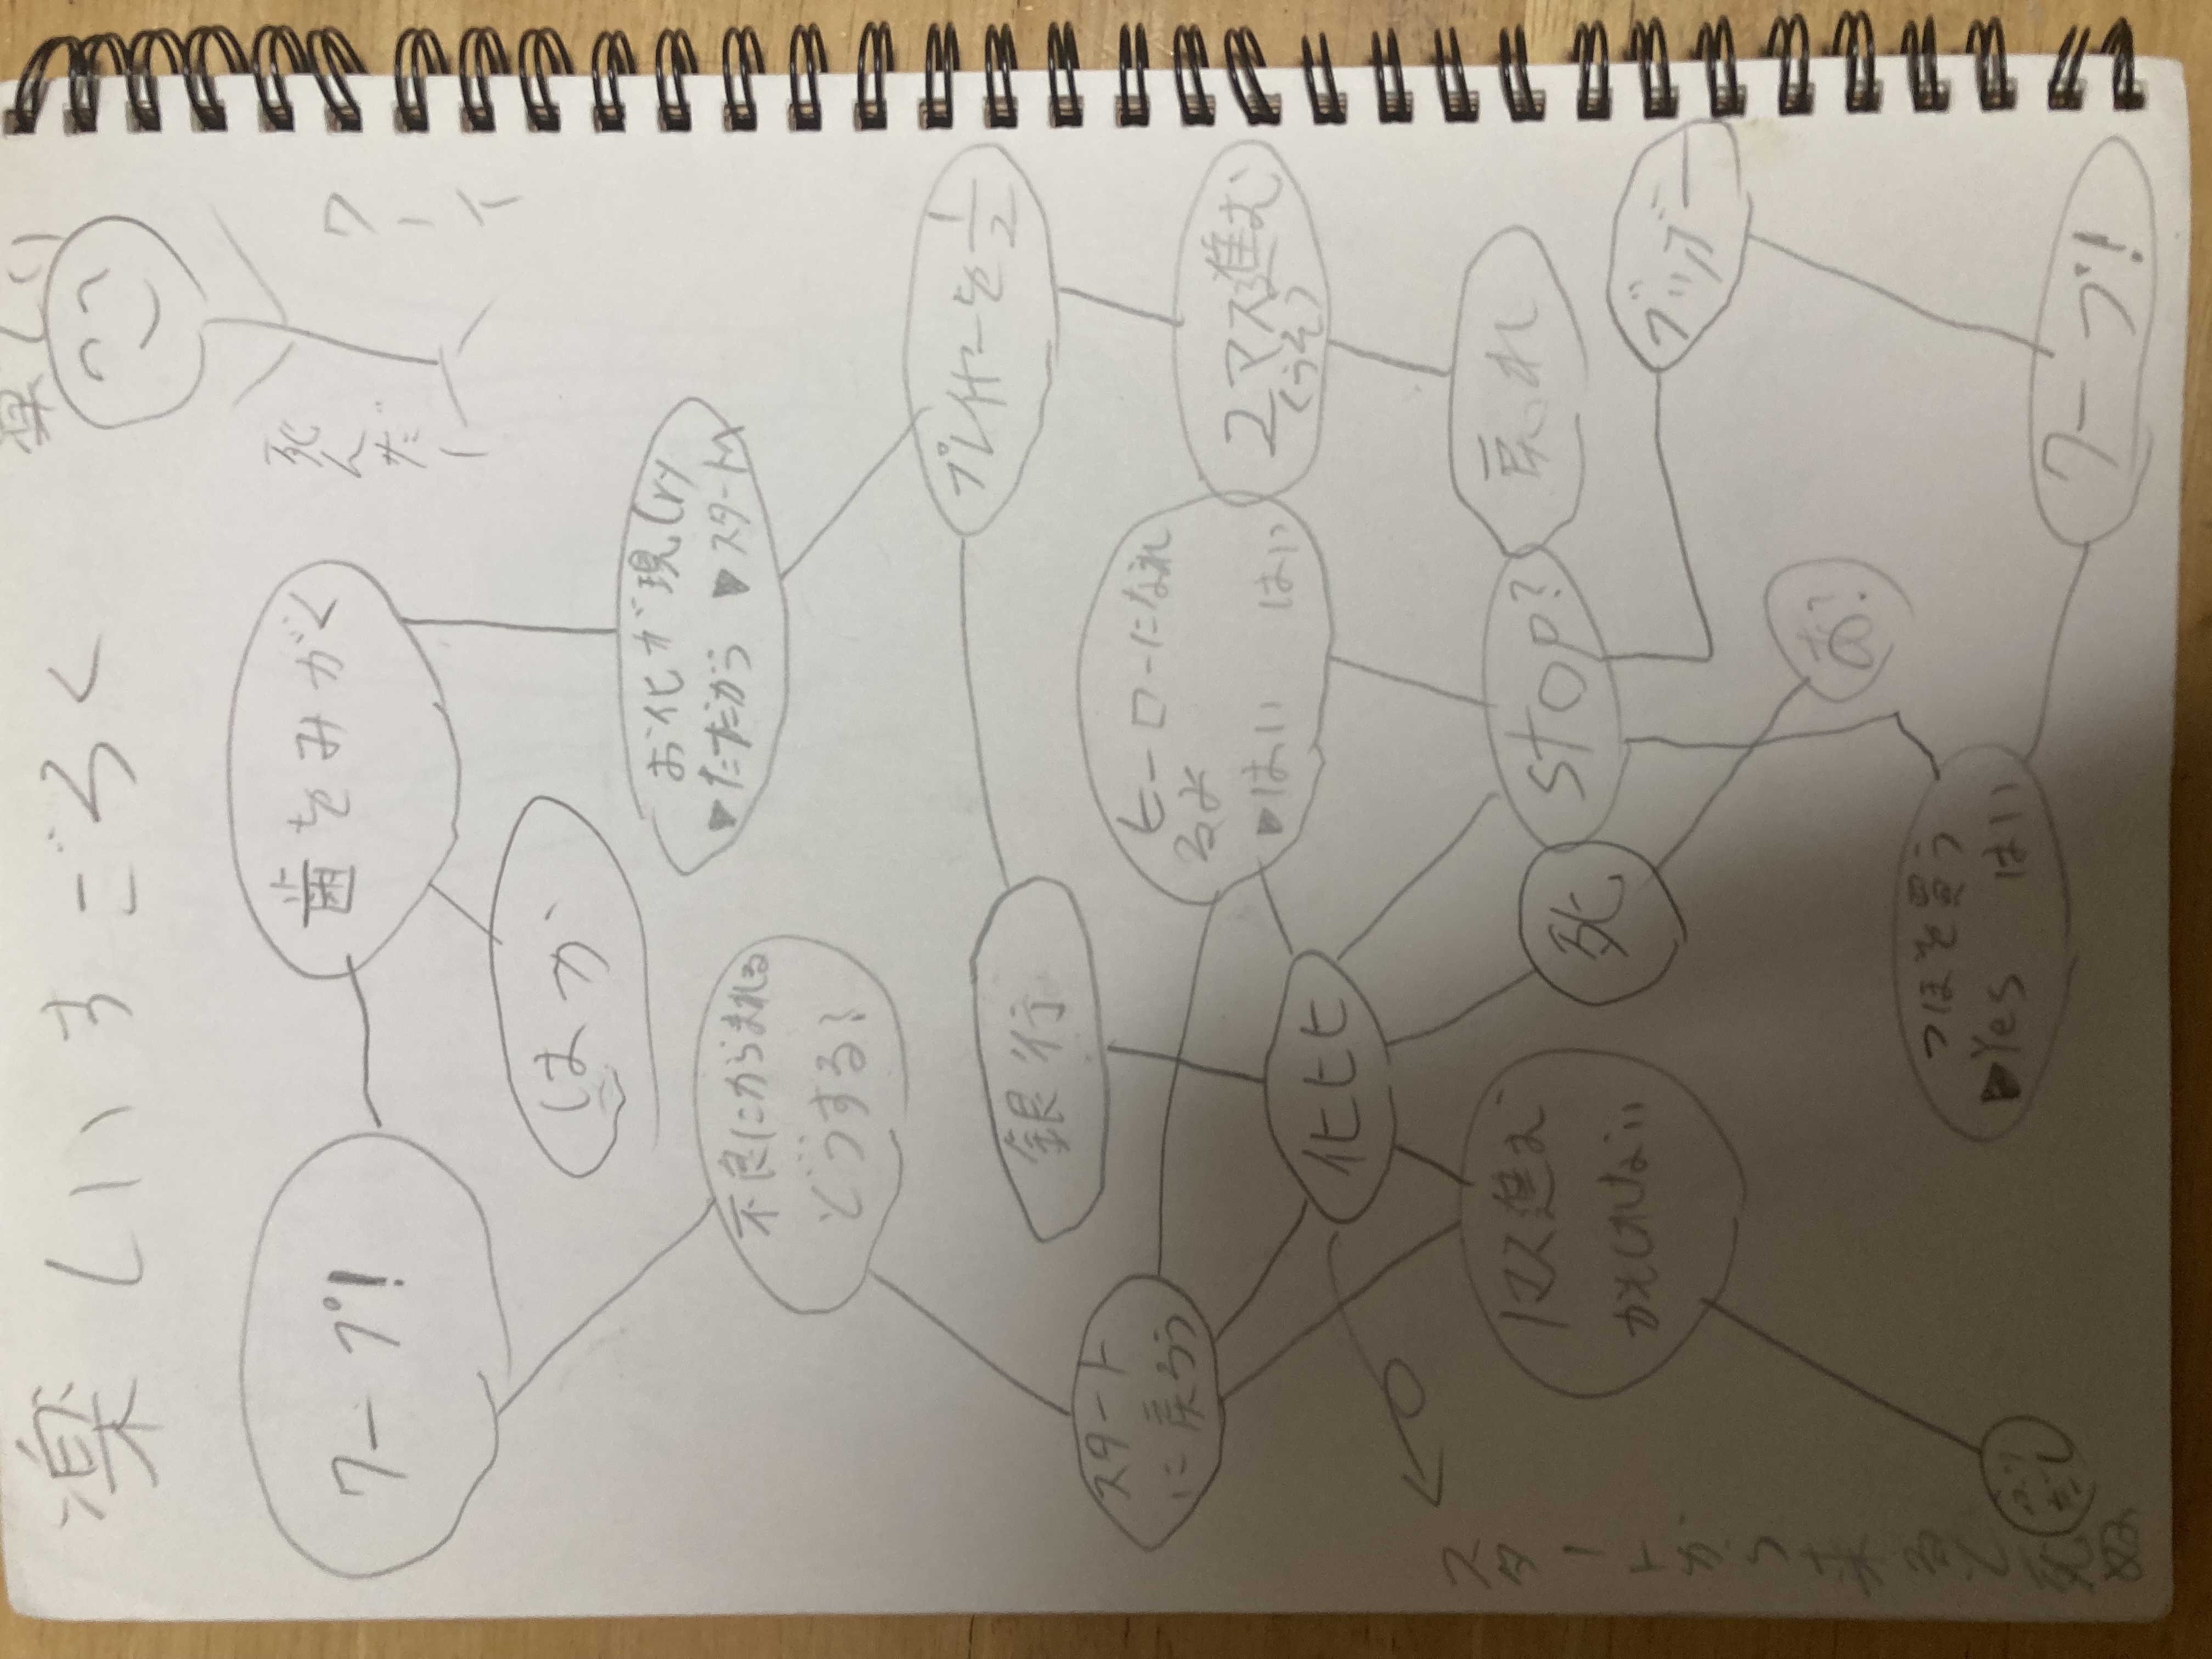 楽しいすごろく
楽しい
死んだー
ワーイ
ワープ!
歯をみがく
はか
お化が現し(ry
▶たたがう ▶スタートへ
不良にからまれる
どうする?
プレイヤーを1/2
銀行
スタート
に戻ろう
ヒーローになれ
るよ
▶はい はい
2マス進む
(うそ)
化ヒヒ
1マス進む
かもしれない
死
stop?
戻れ
ブッブー
お?
つぼを買う
▶Yes はい
ワープ!
スタートから来ると死ぬ